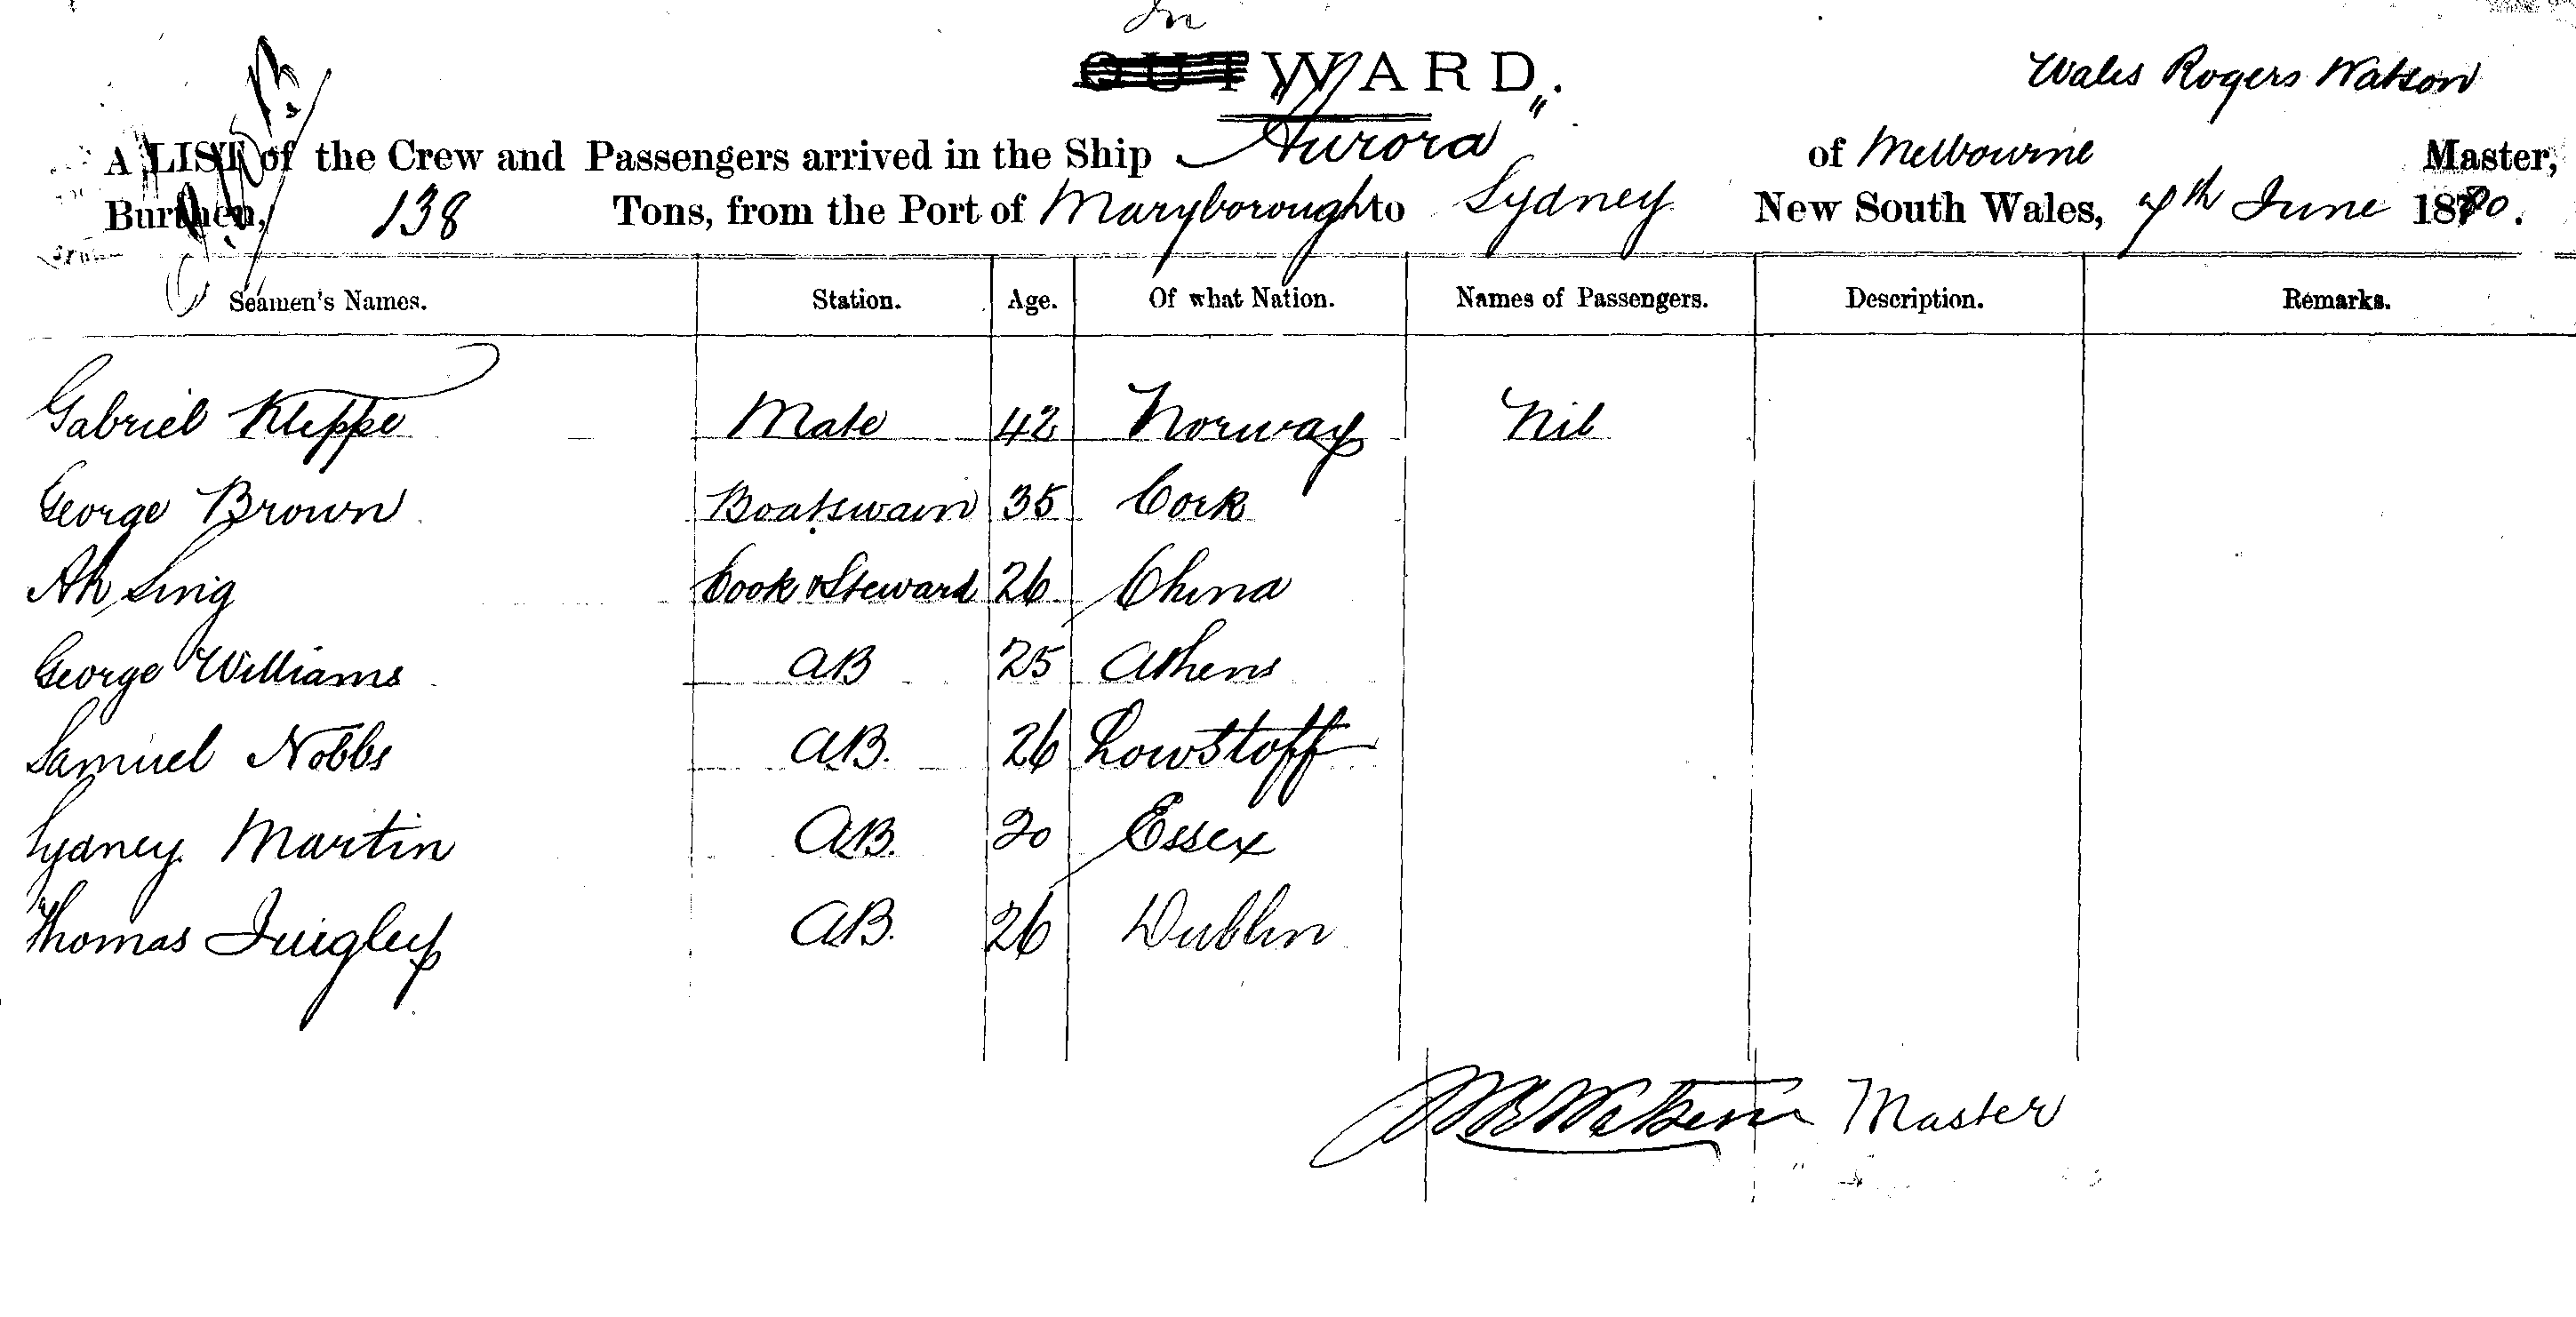 In
OUTWARD.
Wales Rogers Watson
A LIST of the Crew and Passengers arrived in the Ship "Aurora" of Melbourne Master,
Burthen, 138 Tons, from the Port of Maryborough to Sydney New South Wales, 7th June 1880.
Seamen's Names. Station. Age. Of what Nation. Names of Passengers. Description. Remarks.
Gabriel Kleppe Mate 42 Norway Nil
George Brown Boatswain 35 Cork
Ah Sing Cook & Steward 26 China
George Williams AB 25 Athens
Samuel Nobbs AB. 26 Lowstoff
Sydney Martin AB. 20 Essex
Thomas Quigley AB. 26 Dublin
WR Watson Master